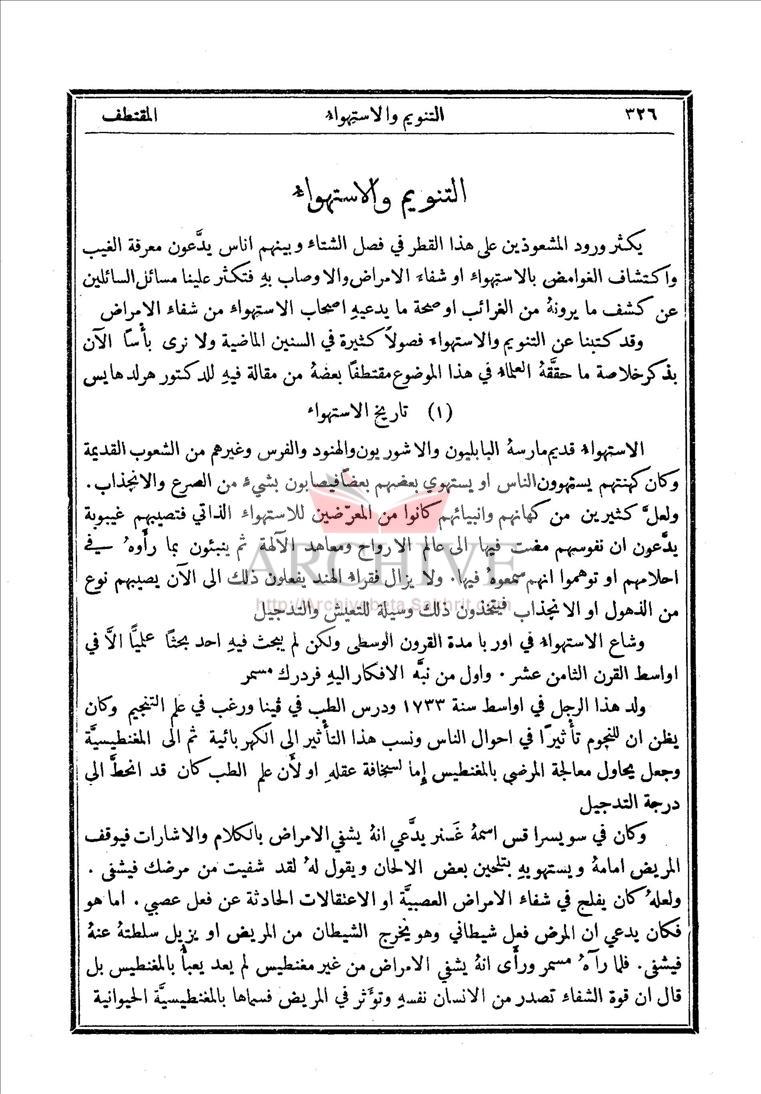 ٣٢٦ التنويم والاستهواء المقتطف
التنويم والاستهواء
يكثر ورود المشعوذين على هذا القطر في فصل الشتاء وبينهم اناس يدَّعون معرفة الغيب
واكتشاف الغوامض بالاستهواء او شفاء الامراض والاوصاب بهِ فتكثر علينا مسائل السائلين
عن كشف ما يرونهُ من الغرائب او صحة ما يدعيهِ اصحاب الاستهواء من شفاء الامراض
وقد كتبنا عن التنويم والاستهواء فصولاً كثيرة في السنين الماضية ولا نرى بأسًا الآن
بذكر خلاصة ما حققَّهُ العلماء في هذا الموضوع مقتطفًا بعضهُ من مقالة فيهِ للدكتور هرلد هايس
(١) تاريخ الاستهواء
الاستهواء قديم مارسهُ البابليون والاشوريون والهنود والفرس وغيرهم من الشعوب القديمة
وكان كهنتهم يستهوون الناس او يستهوي بعضهم بعضًا فيصابون بشيءٍ من الصرع والانجذاب .
ولعلَّ كثيرين من كهانهم وانبيائهم كانوا من المعرَّضين للاستهواء الذاتي فتصيبهم غيبوبة
يدَّعون ان نفوسهم مضت فيها الى عالم الارواح ومعاهد الآلهة ثم ينبئون بما رأوهُ في
احلامهم او توهموا انهم سمعوهُ فيها . ولا يزال فقراء الهند يفعلون ذلك الى الآن يصيبهم نوع
من الذهول او الانجذاب فيتخذون ذلك وسيلة للتعيش والتدجيل
وشاع الاستهواء في اوربا مدة القرون الوسطى ولكن لم يبحث فيهِ احد بحثًا علميًّا الاَّ في
اواسط القرن الثامن عشر . واول من نبَّه الافكار اليهِ فردرك مسمر
ولد هذا الرجل في اواسط سنة ١٧٣٣ ودرس الطب في ڤينا ورغب في علم التنجيم وكان
يظن ان للنجوم تأثيرًا في احوال الناس ونسب هذا التأثير الى الكهربائية ثم الى المغنطيسيَّة
وجعل يحاول معالجة المرضى بالمغنطيس إما لسخافة عقلهِ او لأن علم الطب كان قد انحطَّ الى
درجة التدجيل
وكان في سويسرا قس اسمهُ غَسنر يدَّعي انهُ يشفي الامراض بالكلام والاشارات فيوقف
المريض امامهُ ويستهويهِ بتلحين بعض الالحان ويقول لهُ لقد شفيت من مرضك فيشفى .
ولعلهُ كان يفلح في شفاء الامراض العصبيَّة او الاعتقالات الحادثة عن فعل عصبي . اما هو
فكان يدعي ان المرض فعل شيطاني وهو يُخرج الشيطان من المريض او يزيل سلطتهُ عنهُ
فيشفى . فلما رآهُ مسمر ورأى انهُ يشفي الامراض من غير مغنطيس لم يعد يعبأُ بالمغنطيس بل
قال ان قوة الشفاء تصدر من الانسان نفسهِ وتؤثر في المريض فسماها بالمغنطيسيَّة الحيوانية
ARCHIVE
http://Archivebeta.Sakhrit.com